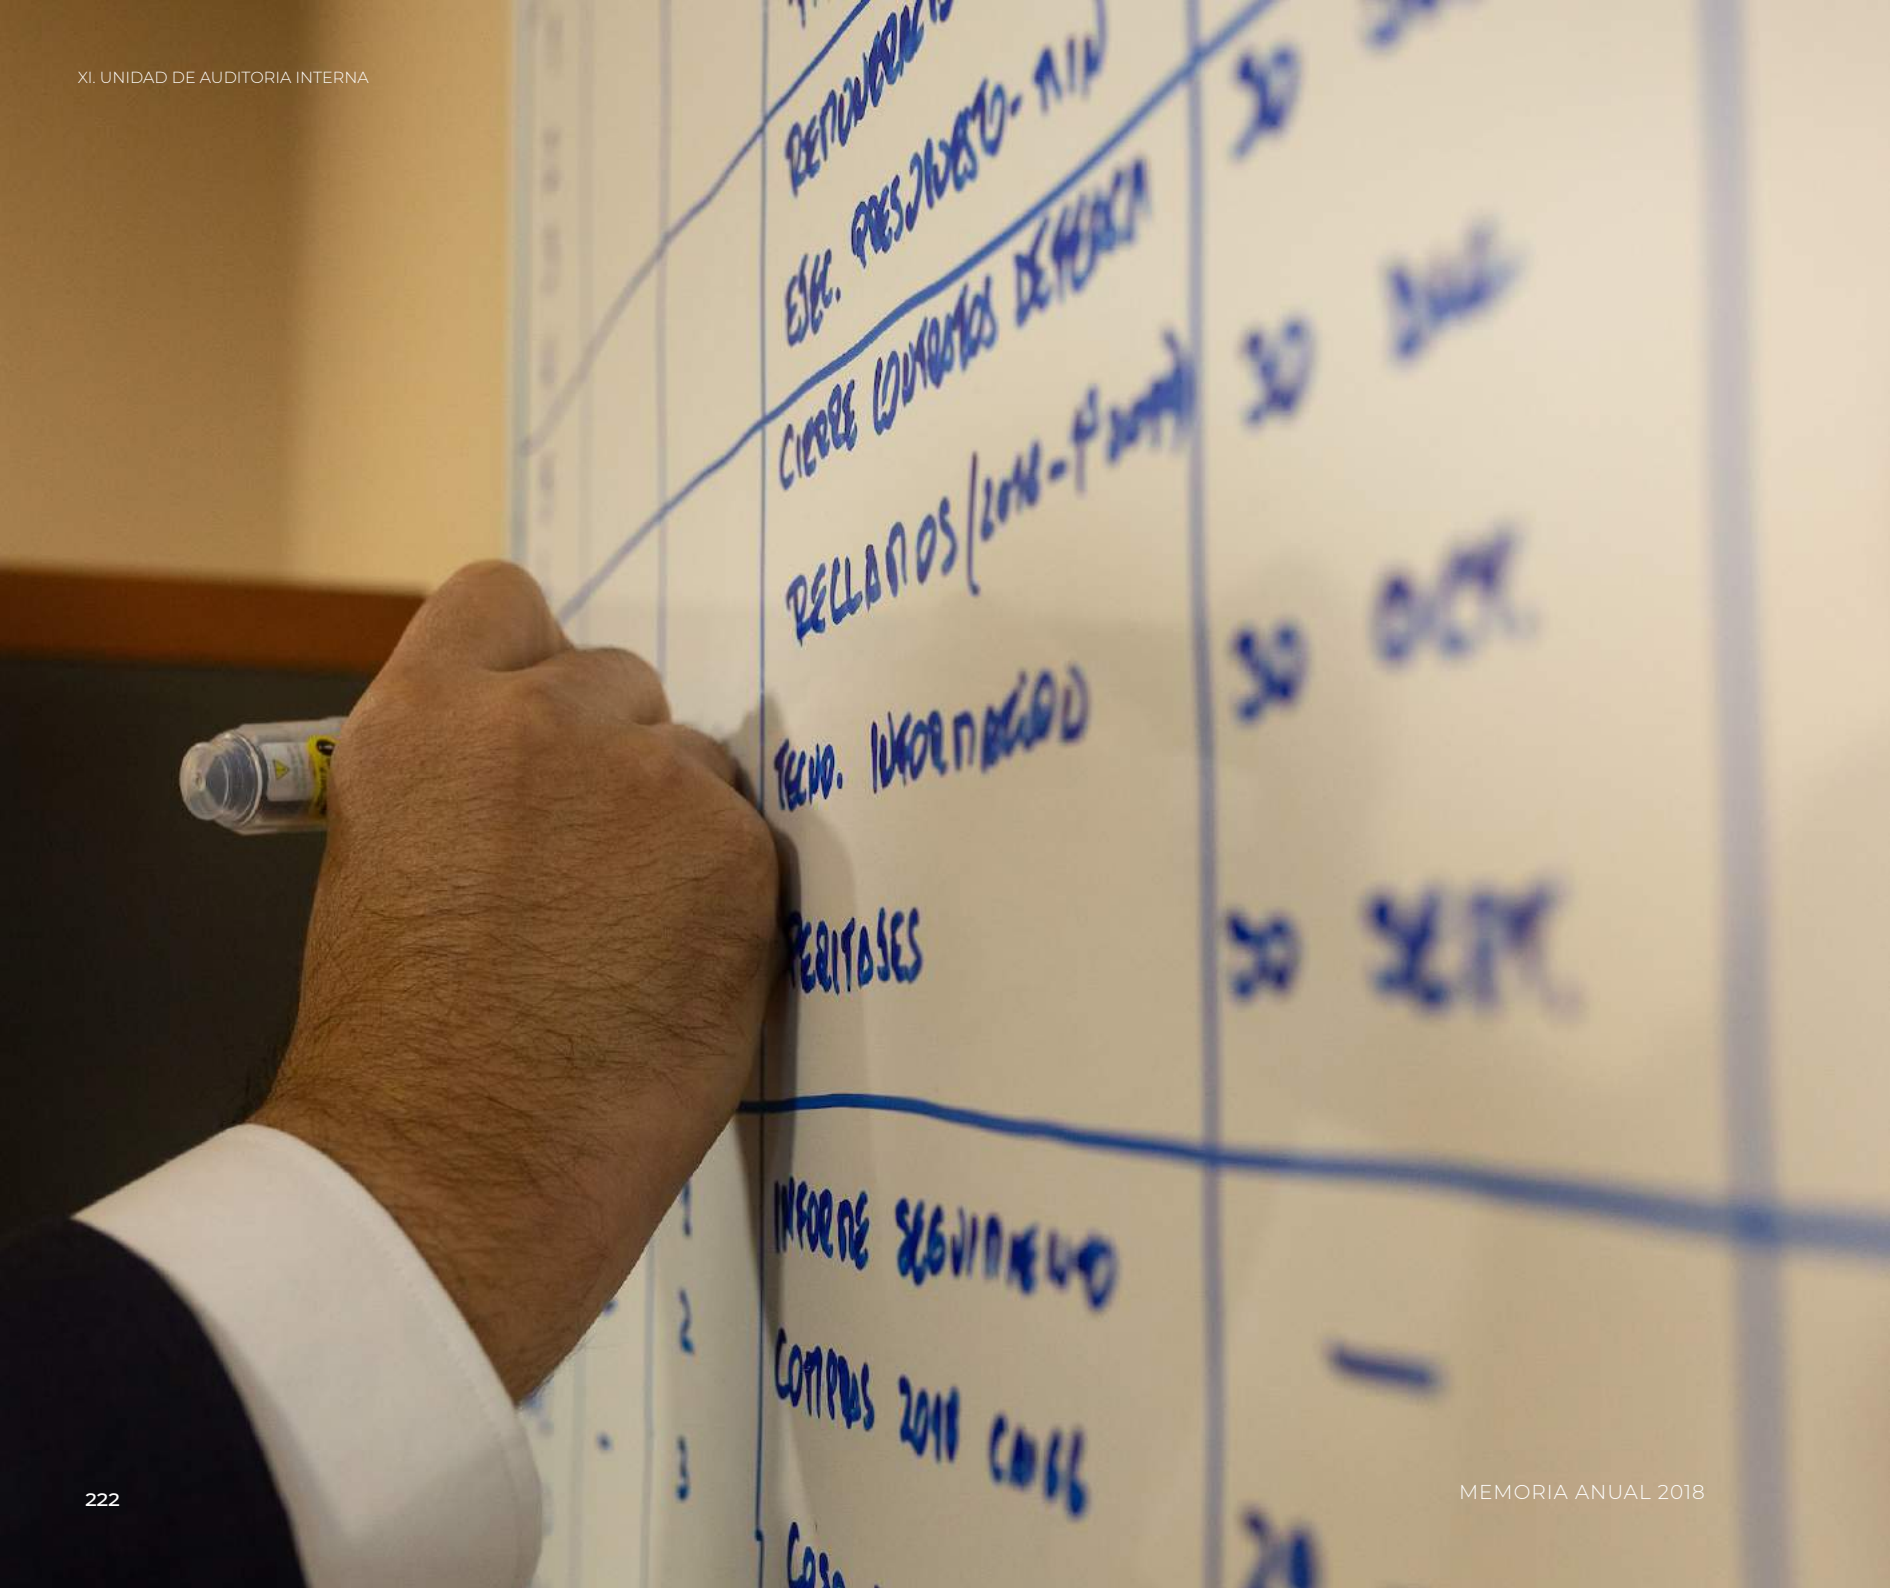 XI. UNIDAD DE AUDITORIA INTERNA
EJEC. PRESUPUESTO - MIN
30
CIERRE CONTRATOS DEFENSA
30 DIC.
RECLAMOS (2018 -
30 OCT.
TECNO. INFORMACIÓN
PERITAJES
30 SEPT.
1 INFORME SEGUIMIENTO
2 COMPRAS 2018
—
3
20
222
MEMORIA ANUAL 2018